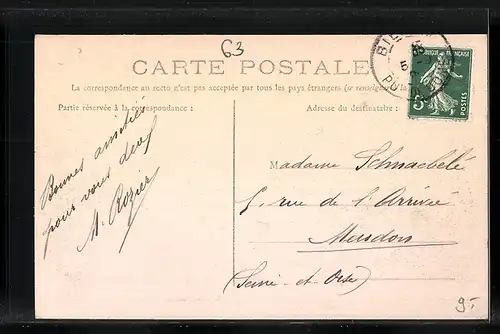 63
CARTE POSTALE
La correspondance au recto n'est pas acceptée par tous les pays étrangers (se renseigner
Partie réservée à la correspondance :
Adresse du destinataire :
Bonnes amitiés
pour vous deux
M. Rozier
Madame Schnaebelé
5, rue de l'Arrivée
Meudon
(Seine-et-Oise)
RÉPUBLIQUE FRANÇAISE
5c
POSTES
BIL
5
PUY
95-